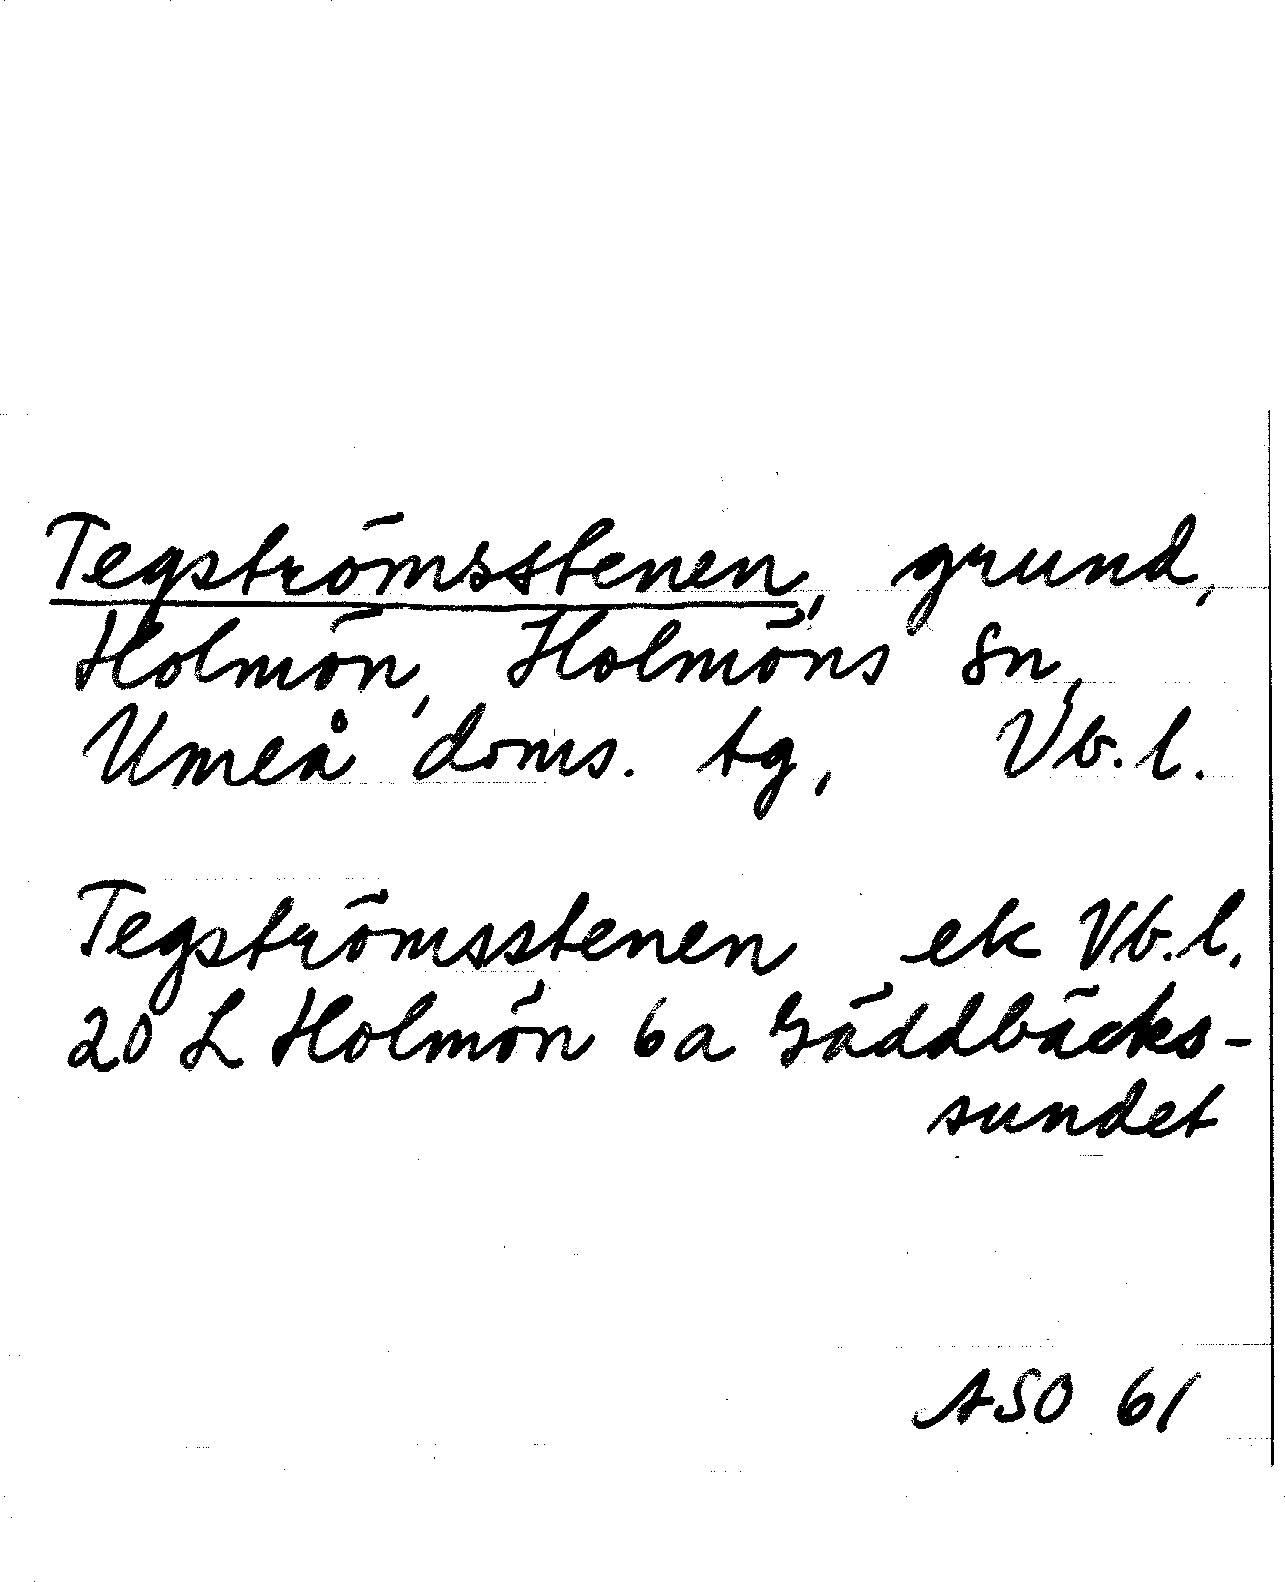 Tegströmsstenen, grund,
Holmön, Holmöns sn,
Umeå doms. tg, Vb. l.
Tegströmsstenen ek Vb. l.
20 L Holmön 6a Gäddbäcks-
sundet
ASO 61